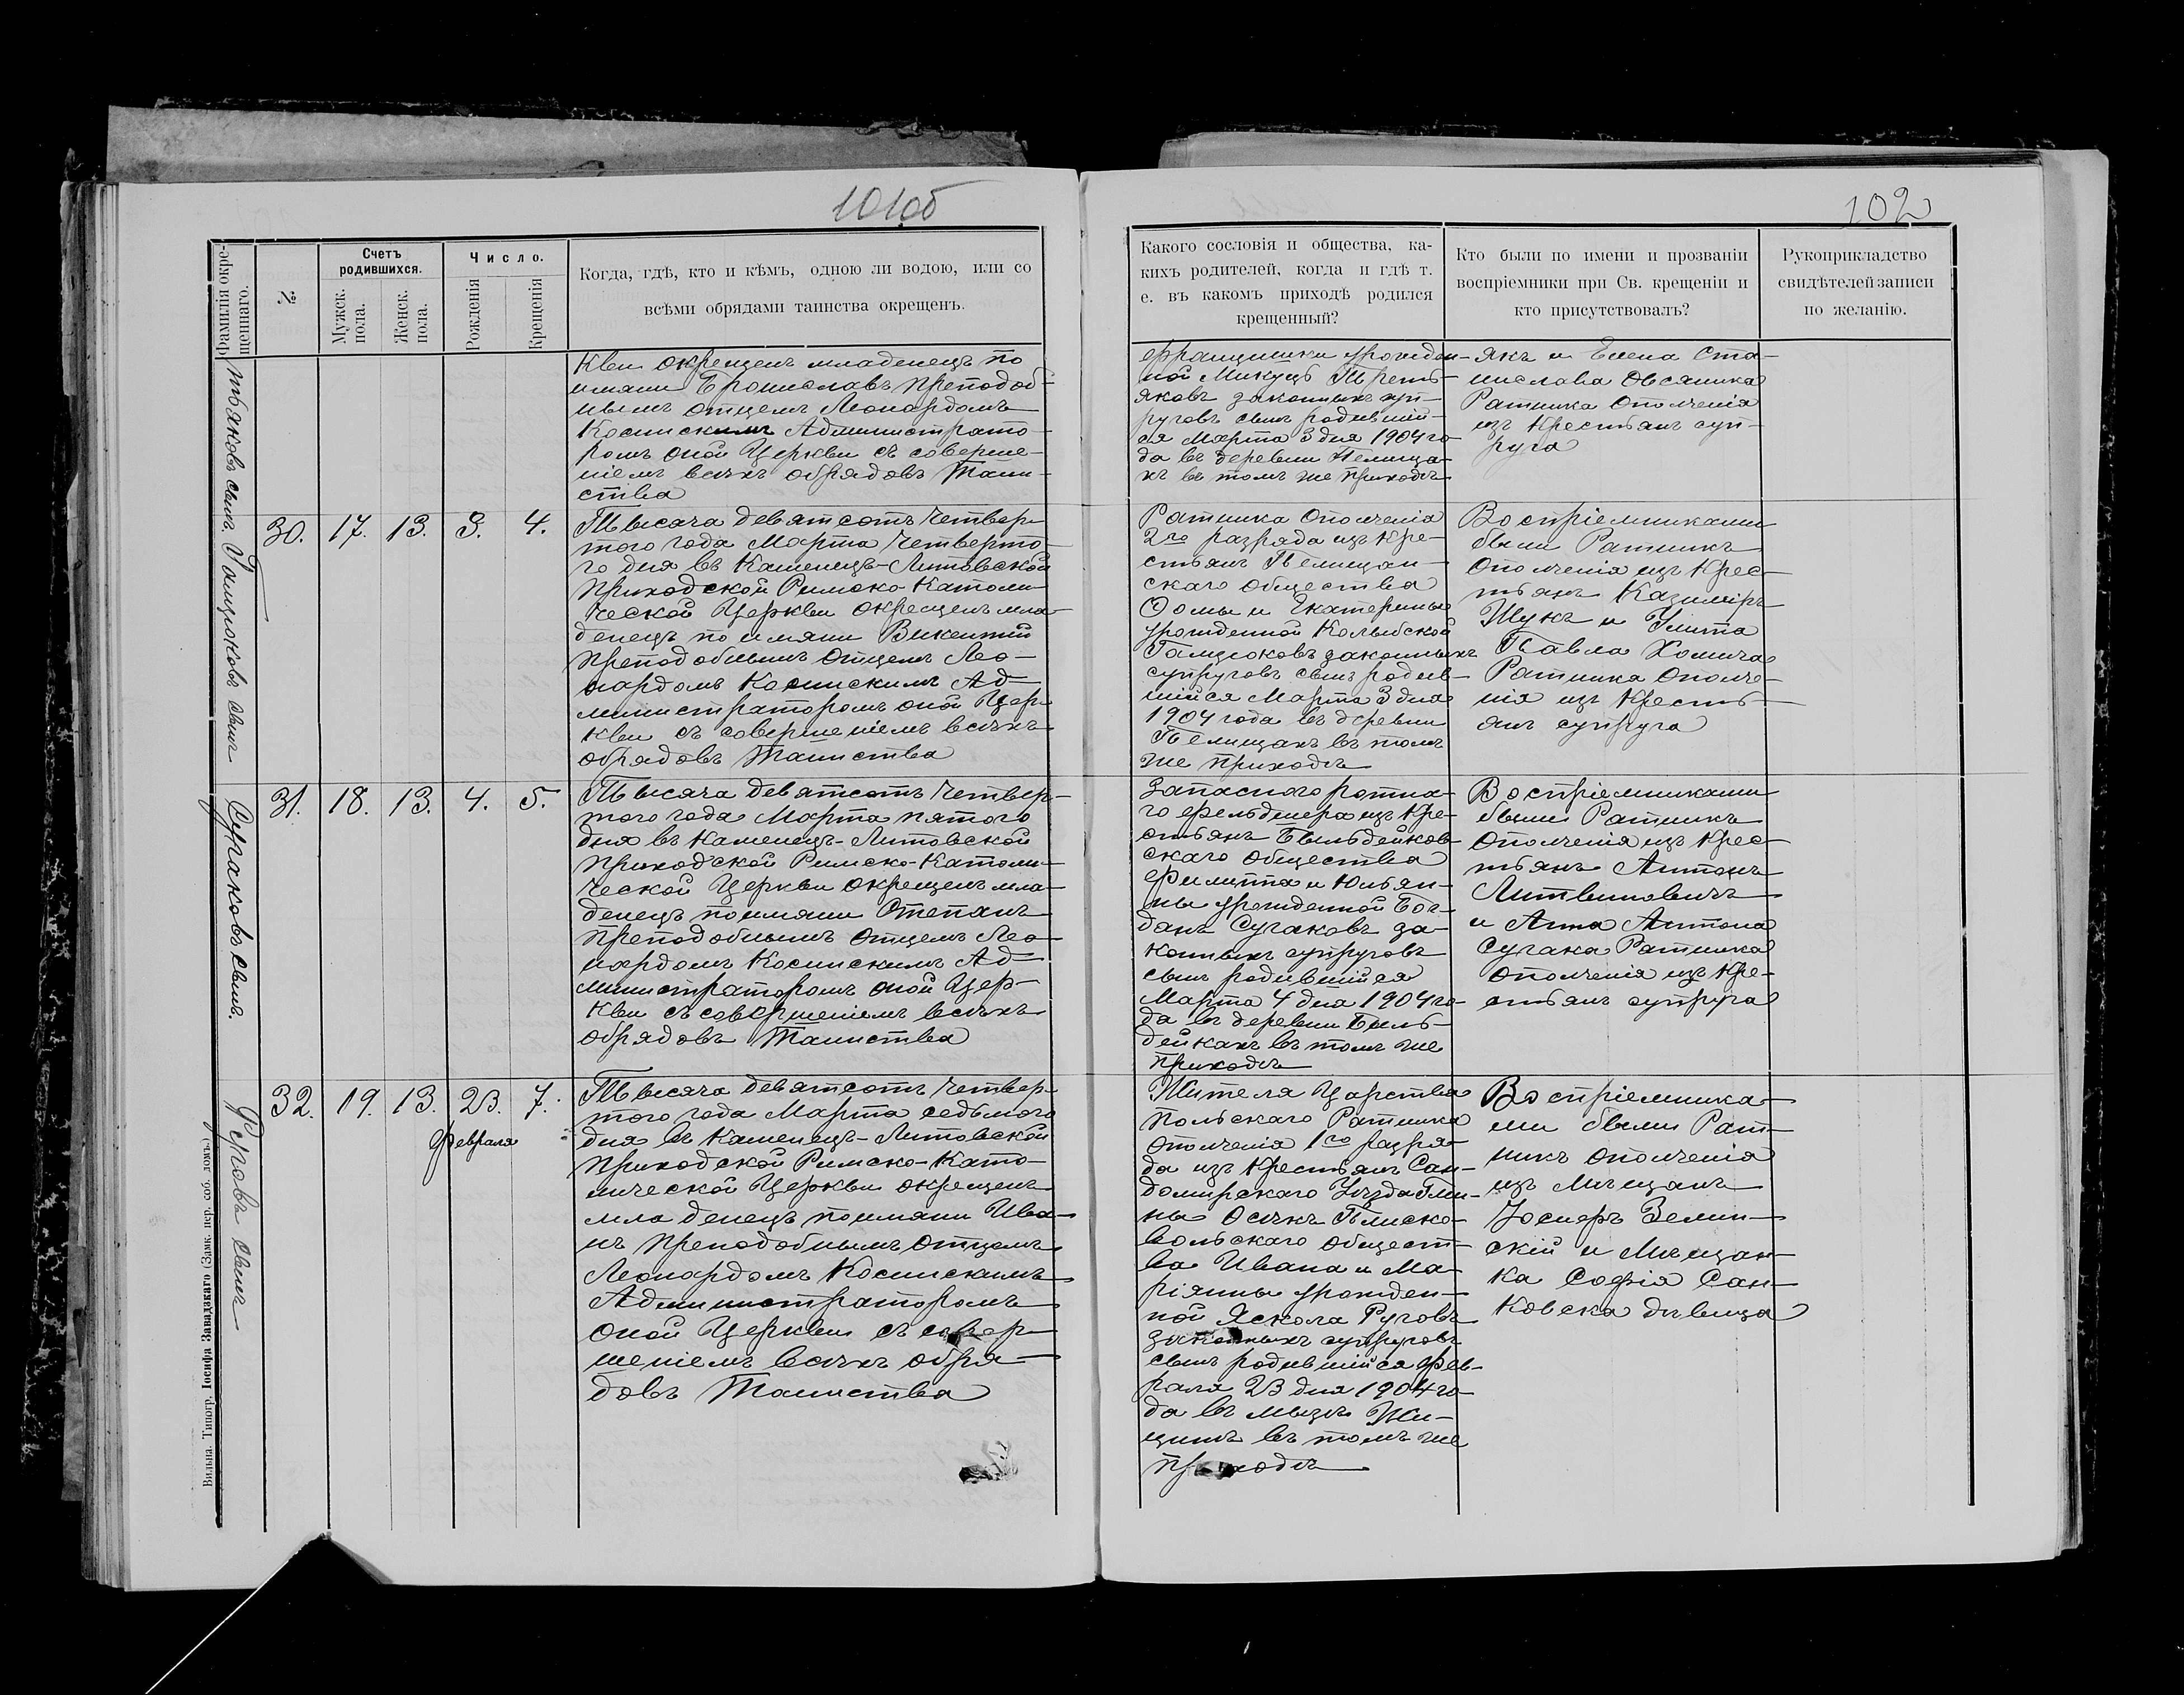 101об
Фамилія окре-
щеннаго.
№
Счетъ
родившихся.
Мужск.
пола.
Женск.
пола.
Число.
Рожденія
Крещенія
Когда, гдѣ, кто и кѣмъ, одною ли водою, или со
всѣми обрядами таинства окрещенъ.
тьяковъ сынъ.
кви окрещенъ младенецъ по
имяни Брониславъ преподоб-
нымъ отцемъ Леонардомъ
Косинскимъ Администрато-
ромъ оной Церкви съ соверше-
ніемъ всѣхъ обрядовъ Таин-
ства
Гацюковъ сынъ
30. 17. 13. 3. 4.
Тысяча девятсотъ четвер-
таго года Марта четверта-
го дня въ Каменецъ-Литовской
приходской Римско-Католи-
ческой Церкви окрещенъ мла-
денецъ по имяни Викентій
преподобнымъ отцемъ Лео-
нардомъ Косинскимъ Ад-
министраторомъ оной Цер-
кви съ совершеніемъ всѣхъ
обрядовъ Таинства
Сугаковъ сынъ.
31. 18. 13. 4. 5.
Тысяча девятсотъ четвер-
таго года Марта пятого
дня въ Каменецъ-Литовской
приходской Римско-Католи-
ческой Церкви окрещенъ мла-
денецъ по имяни Степанъ
преподобнымъ отцемъ Лео-
нардомъ Косинскимъ Ад-
министраторомъ оной Цер-
кви съ совершеніемъ всѣхъ
обрядовъ Таинства
Руговъ сынъ
32. 19. 13. 23. 7.
Февраля
Тысяча девятсотъ четвер-
таго года Марта седьмого
дня въ Каменецъ-Литовской
приходской Римско-Като-
лической Церкви окрещенъ
младенецъ по имяни Ива-
нъ преподобнымъ отцемъ
Леонардомъ Косинскимъ
Администраторомъ
оной Церкви съ совер-
шеніемъ всѣхъ обря-
довъ Таинства
Вильна. Типогр. Іосифа Завадзкаго (Замк. пер. соб. домъ)
102
Какого сословія и общества, ка-
кихъ родителей, когда и гдѣ т.
е. въ какомъ приходѣ родился
крещенный?
Кто были по имени и прозванію
воспріемники при Св. крещеніи и
кто присутствовалъ?
Рукоприкладство
свидѣтелей записи
по желанію.
Францишки урожден-
ной Микуцъ Треть-
яковъ законныхъ суп-
руговъ сынъ родивший-
ся Марта 3 дня 1904 го-
да въ деревни Пелища-
хъ въ томъ же приходѣ
якъ и Елена Ста-
нислава Овсяника
Ратника Ополченія
изъ Крестьянъ суп-
руга
Ратника Ополченія
2го разряда изъ Кре-
стьянъ Пелищан-
скаго общества
Ѳомы и Екатерины
урожденной Колыбской
Гацюковъ законныхъ
супруговъ сынъ родив-
шійся Марта 3 дня
1904 года въ деревни
Пелищахъ въ томъ
же приходѣ
Воспріемниками
были Ратникъ
Ополченія изъ Крес-
тьянъ Казиміръ
Жукъ и Улита
Павла Хомича
Ратника Ополче-
нія изъ Кресть-
янъ супруга
Запасного ротна-
го фельдшера изъ Кре-
стьянъ Быльдейков-
скаго общества
Филиппа и Юльян-
ны урожденной Бог-
данъ Сугаковъ за-
конныхъ супруговъ
сынъ родившійся
Марта 4 дня 1904 го-
да въ деревни Быль-
дейкахъ въ томъ же
приходѣ
Воспріемниками
были Ратникъ
Ополченія изъ Крес-
тьянъ Антонъ
Литвиновичъ
и Анна Антона
Сугака Ратника
ополченія изъ Кре-
стьянъ супруга
Жителя Царства
Польскаго Ратника
Ополченія 1го разря-
да изъ Крестьянъ Сан-
домирскаго Уѣзда Гми-
ны Осѣкъ Плиско-
вольскаго общест-
ва Ивана и Ма-
ріянны урожден-
ной Яскола Руговъ
законныхъ супруговъ
сынъ родившійся Фев-
раля 23 дня 1904 го-
да въ мызѣ Жи-
цинъ въ томъ же
приходѣ
Воспріемника-
ми были Рат-
никъ ополченія
изъ Мѣщанъ
Юсиеръ Зелин-
скій и Мѣщан-
ка Софія Сан-
ковска дѣвица